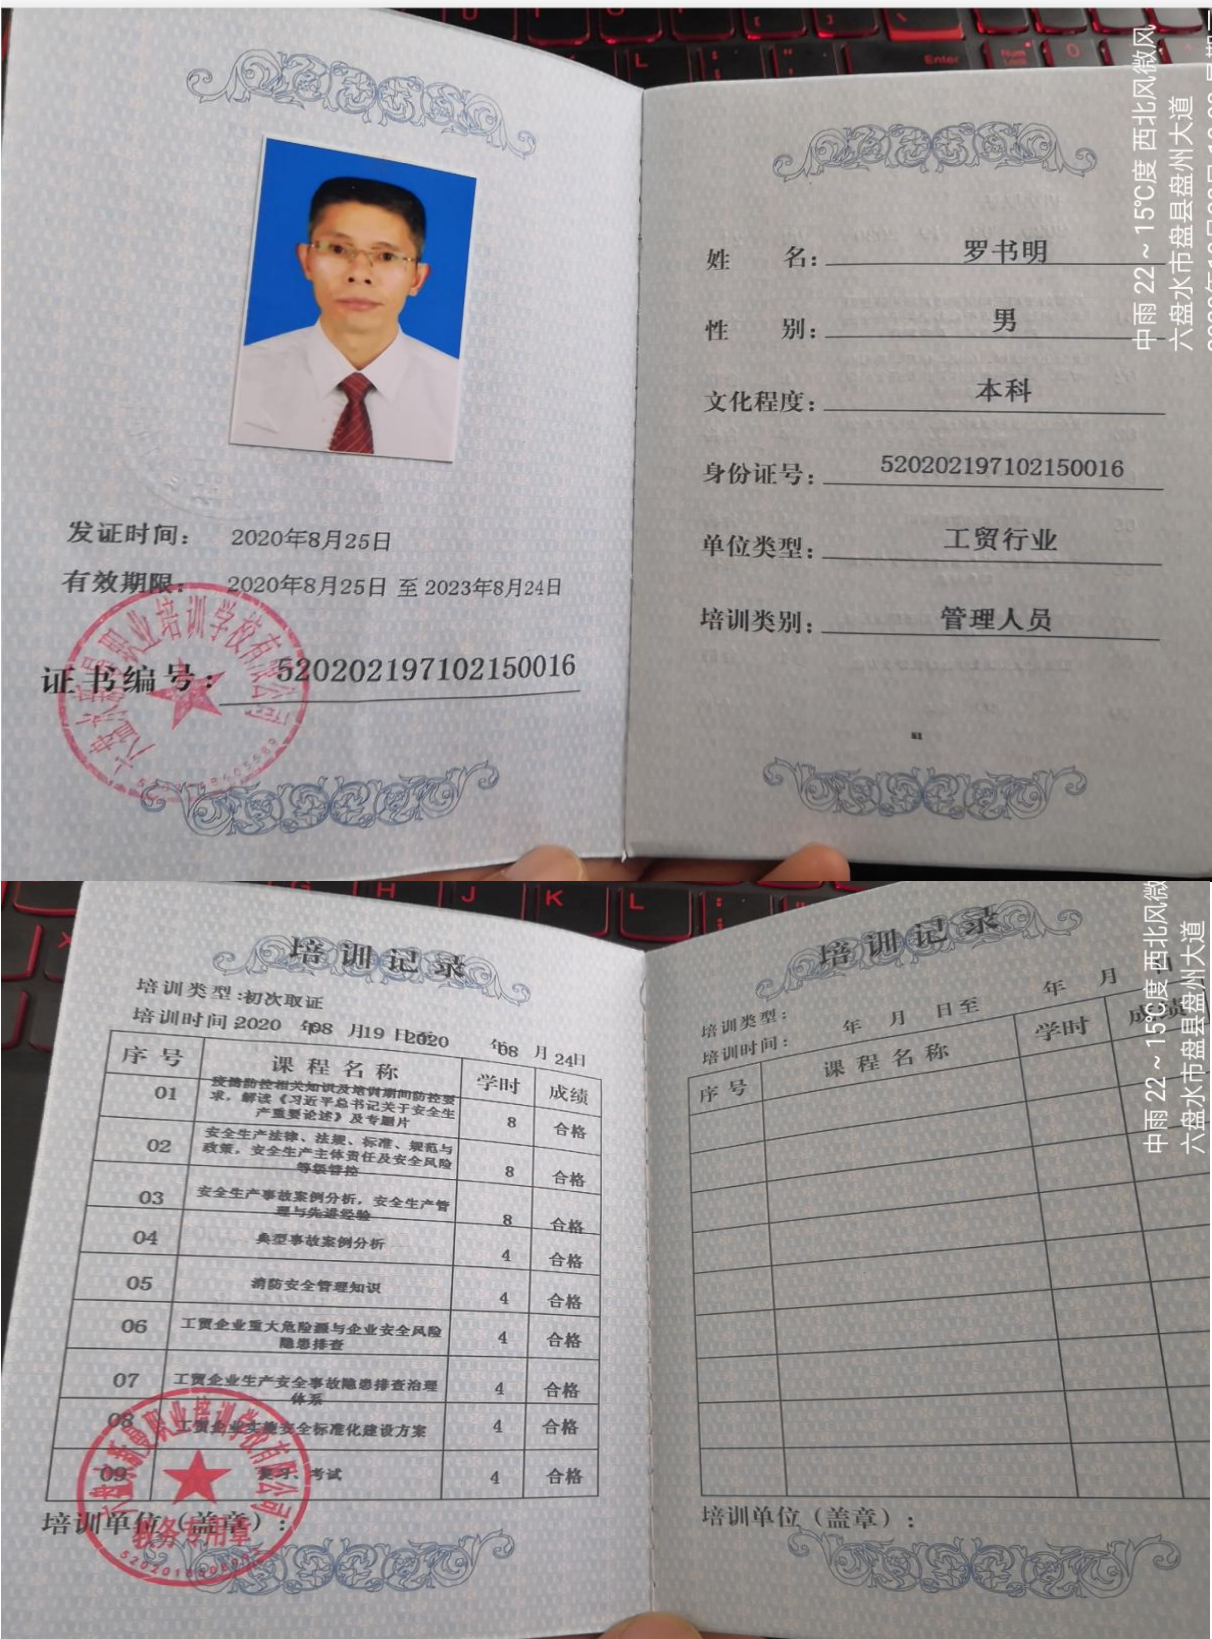 发证时间： 2020年8月25日
有效期限： 2020年8月25日 至 2023年8月24日
证书编号： 520202197102150016
职业培训学校有限公司
姓 名： 罗书明
性 别： 男
文化程度： 本科
身份证号： 520202197102150016
单位类型： 工贸行业
培训类别： 管理人员
中雨 22 ~ 15℃度 西北风微风
六盘水市盘县盘州大道
培训记录
培训类型:初次取证
培训时间:2020 年08 月19 日至2020 年08 月24日
序号 课程名称 学时 成绩
01 疫情防控相关知识及培训期间防控要
求，解读《习近平总书记关于安全生
产重要论述》及专题片 8 合格
02 安全生产法律、法规、标准、规范与
政策，安全生产主体责任及安全风险
等级管控 8 合格
03 安全生产事故案例分析，安全生产管
理与先进经验 8 合格
04 典型事故案例分析 4 合格
05 消防安全管理知识 4 合格
06 工贸企业重大危险源与企业安全风险
隐患排查 4 合格
07 工贸企业生产安全事故隐患排查治理
体系 4 合格
08 工贸企业实施安全标准化建设方案 4 合格
09 复习、考试 4 合格
培训单位（盖章）：
职业培训学校有限公司
教务专用章
培训记录
培训类型：
培训时间： 年 月 日至 年 月 日
序号 课程名称 学时 成绩
培训单位（盖章）：
中雨 22 ~ 15℃度 西北风微
六盘水市盘县盘州大道